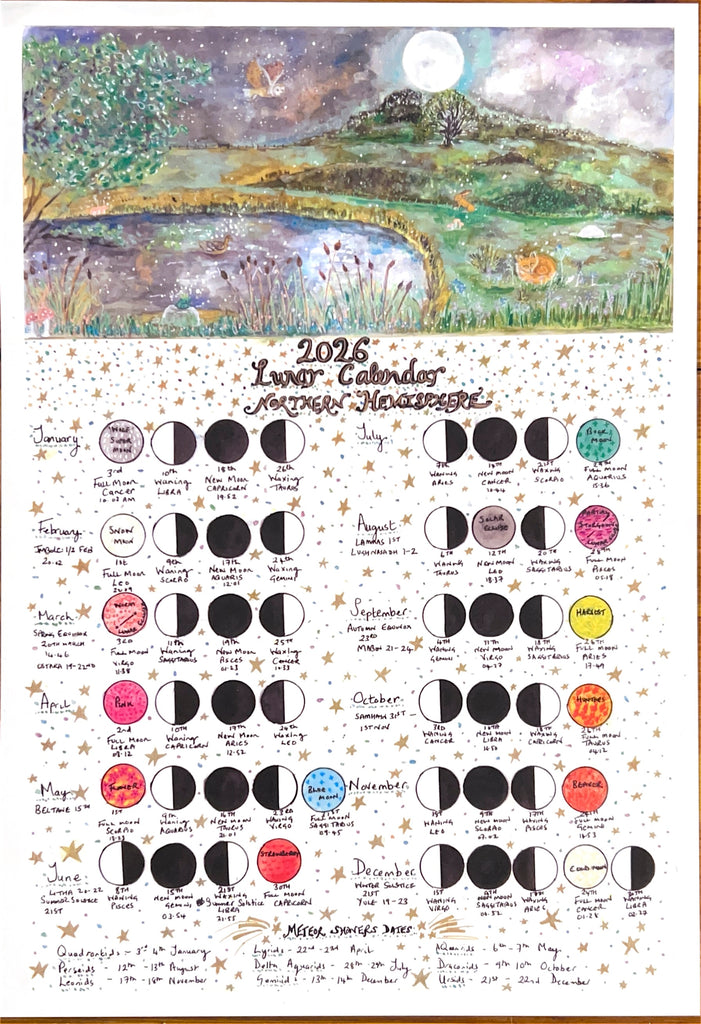 2026
Lunar Calendar
NORTHERN HEMISPHERE
January
WOLF
SUPER
MOON
3rd
Full Moon
Cancer
10.03 AM
10th
Waning
LIBRA
18th
New Moon
CAPRICORN
19.52
26th
Waxing
TAURUS
February
IMBOLC 1/2 FEB
20.02
SNOW
MOON
1st
Full Moon
LEO
22.09
9th
Waning
SCORPIO
17th
New Moon
AQUARIS
12.01
24th
Waxing
Gemini
March
SPRING EQUINOX
20TH MARCH
14.46
OSTARA 19-22ND
WORM
LUNAR ECLIPSE
3RD
Full Moon
VIRGO
11.38
11th
Waning
SAGGITARIUS
19th
New Moon
PISCES
01.23
25th
Waxing
CANCER
April
PINK
2nd
FULL MOON
LIBRA
10th
Waning
CAPRICORN
17th
New Moon
ARIES
12.52
24th
Waxing
LEO
May
BELTANE 15th
FLOWER
1st
Full Moon
SCORPIO
9th
Waning
AQUARIUS
16th
New Moon
TAURUS
23rd
Waxing
VIRGO
BLUE
MOON
31st
Full Moon
SAGITARIUS
09.45
June
LITHA 20-22
SUMMER SOLSTICE
21ST
8th
Waning
PISCES
15th
New Moon
Gemini
03.54
21st
Waxing
Summer Solstice
LIBRA
STRAWBERRY
30th
Full Moon
CAPRICORN
July
7th
WANING
ARIES
NEW MOON
CANCER
21st
WAXING
SCORPIO
BUCK
MOON
29th
FULL MOON
AQUARIUS
15.36
August
LAMMAS 1ST
LUGHNASADH 1-2
6th
WANING
TAURUS
SOLAR
ECLIPSE
12th
NEW MOON
LEO
18.37
20th
WAXING
SAGGITARIUS
PARTIAL
STURGEON
LUNAR
28th
FULL MOON
PISCES
05.18
September
AUTUMN EQUINOX
23RD
MABON 21-24
4th
WANING
Gemini
11th
NEW MOON
VIRGO
04.27
18th
WAXING
SAGGITARIUS
HARVEST
26th
FULL MOON
ARIES
17.49
October
SAMHAIN 31ST -
1ST NOV
3RD
WANING
CANCER
NEW MOON
LIBRA
18th
WAXING
CAPRICORN
HUNTERS
26th
FULL MOON
TAURUS
04.12
November
1st
WANING
LEO
9th
NEW MOON
SCORPIO
07.02
17th
WAXING
PISCES
BEAVER
24th
FULL MOON
GEMINI
14.53
December
WINTER SOLSTICE
21ST
YULE 19-23
1st
WANING
VIRGO
9th
NEW MOON
SAGGITARIUS
WAXING
ARIES
COLD MOON
24th
FULL MOON
CANCER
01.28
30th
WANING
LIBRA
METEOR SHOWERS DATES
Quadrantids - 3rd 4th January
Perseids - 12th - 13th August
Leonids - 17th - 18th November
Lyrids - 22nd - 23rd April
Delta Aquarids - 28th 29th July
Geminid - 13th - 14th December
AQuarids - 6th - 7th May
Draconids - 9th 10th October
Ursids - 21st - 22nd December